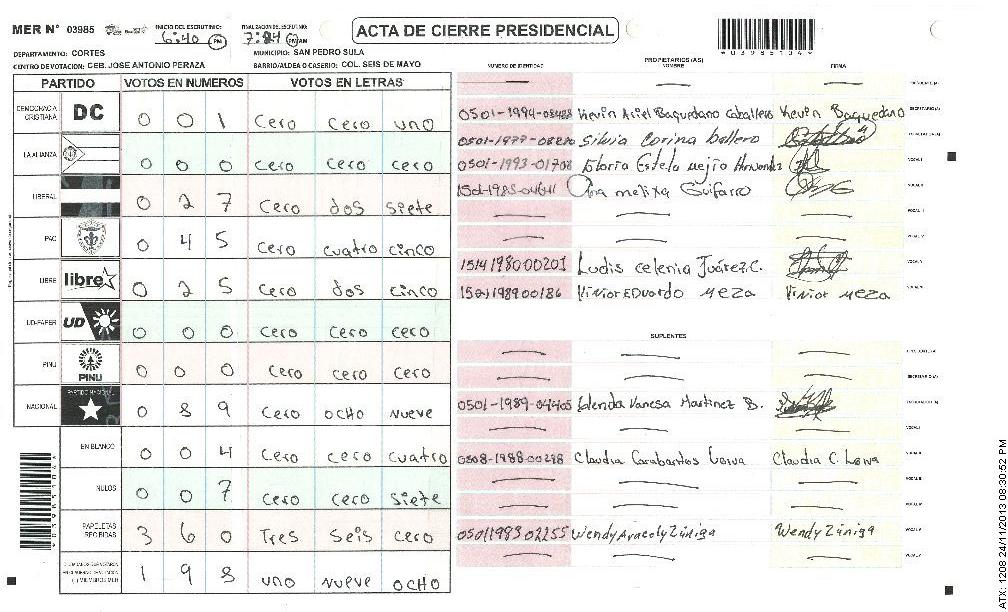 MER N° 03985
INICIO DEL ESCRUTINIO: 6:40 PM
FINALIZACION DEL ESCRUTINIO: 7:24 PM AM
ACTA DE CIERRE PRESIDENCIAL
03985104
DEPARTAMENTO: CORTES
MUNICIPIO: SAN PEDRO SULA
CENTRO DE VOTACION: CEB. JOSE ANTONIO PERAZA
BARRIO/ALDEA O CASERIO: COL. SEIS DE MAYO
PARTIDO VOTOS EN NUMEROS VOTOS EN LETRAS
DEMOCRACIA CRISTIANA DC 0 0 1 Cero Cero uno
LA ALIANZA 0 0 0 cero cero cero
LIBERAL 0 2 7 Cero dos siete
PAC 0 4 5 cero cuatro cinco
LIBRE libre 0 2 5 Cero dos cinco
UD-FAPER UD 0 0 0 cero cero cero
PINU PINU 0 0 0 cero cero cero
NACIONAL PARTIDO NACIONAL 0 8 9 Cero ocho nueve
EN BLANCO 0 0 4 Cero cero cuatro
NULOS 0 0 7 Cero cero siete
PAPELETAS RECIBIDAS 3 6 0 Tres seis cero
1 9 8 uno nueve ocho
PROPIETARIOS (AS)
NUMERO DE IDENTIDAD NOMBRE FIRMA
PRESIDENTE(A)
Kevin Ariel Baquedano Caballero Kevin Baquedano SECRETARIO(A)
Silvia Corina
0501-1993-01708 Gloria Estela mejia VOCAL I
Ana melixa Guifarro VOCAL II
VOCAL III
VOCAL IV
1514198000201 Ludis celenia Juárez C. VOCAL V
Vinior EDuardo Meza Vinior Meza
SUPLENTES
PRESIDENTE(A)
SECRETARIO(A)
0501-1989-04405 Vanesa Martinez B.
VOCAL I
0508-1988-00298 Claudia Claudia C. Leiva VOCAL II
VOCAL III
VOCAL IV
0501198302255 Wendy Aracely Zúniga Wendy Zúniga
ATX: 1208 24/11/2013 08:30:52 PM